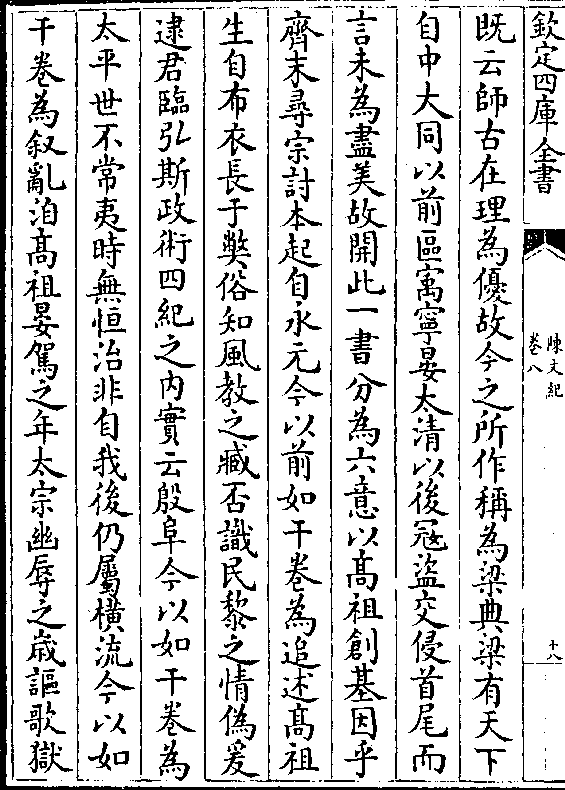 欽定四庫全書
陳文紀
卷八
十八
既云師古在理為優故今之所作稱為梁典梁有天下
自中大同以前區寓寧晏太清以後冦盜交侵首尾而
言未為盡美故開此一書分為六意以髙祖創基因乎
齊末尋宗討本起自永元今以前如干卷為追述髙祖
生自布衣長于獘俗知風教之臧否識民黎之情偽爰
逮君臨弘斯政術四紀之内實云殷阜今以如干卷為
太平世不常夷時無恒治非自我後仍屬横流今以如
干卷為叙亂洎髙祖晏駕之年太宗幽辱之歳謳歌獄